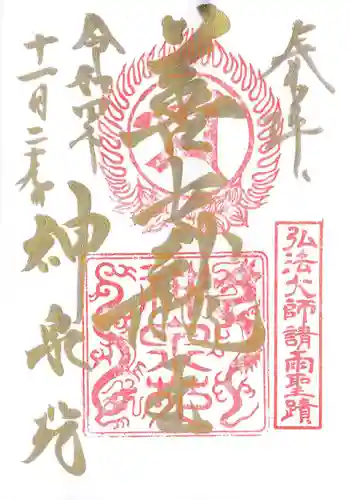 奉拝
弘法大師請雨聖蹟
善女龍王
令和四年
十一月二
神泉苑